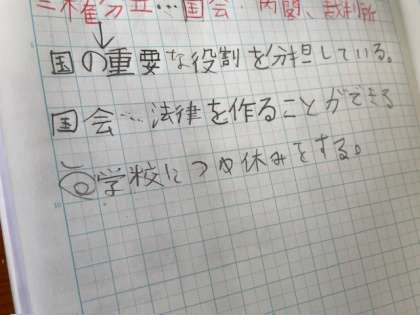 三権分立…国会・内閣、裁判所
国の重要な役割を分担している。
国会…法律を作ることができる
学校に つめ休みをする。